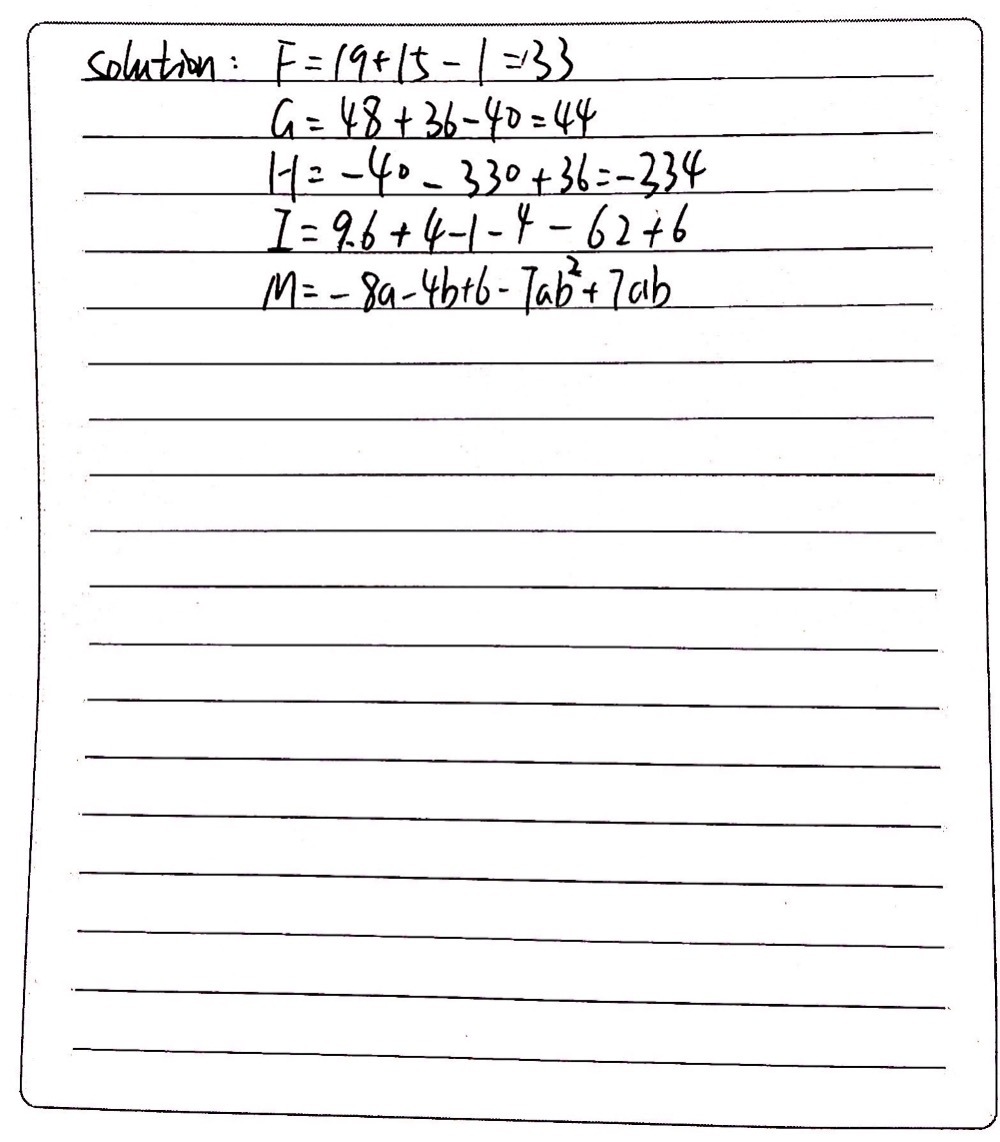 solution: F = 19 + 15 - 1 = 33
G = 48 + 36 - 40 = 44
H = - 40 - 330 + 36 = - 334
I = 9.6 + 4 - 1 - 4 - 62 + 6
M = - 8a - 4b + 6 - 7ab² + 7ab